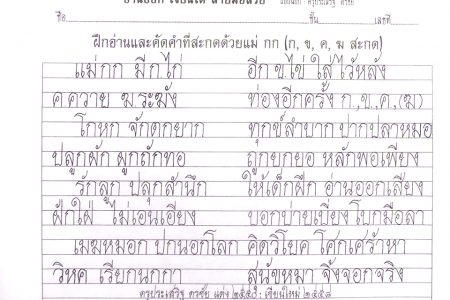 อ่านออก เขียนได้ ลายมือสวย
ชื่อ ชั้น เลขที่
ฝึกอ่านและคัดคำที่สะกดด้วยแม่ กก (ก, ข, ค, ฆ สะกด)
แม่กก มีกไก่ อีก ข.ไข่ ใส่ไว้หลัง
ค ควาย ฆ.ระฆัง ท่องอีกครั้ง ก.,ข.,ค.,(ฆ)
โกหก จักตกยาก ทุกข์ลำบาก ปากปลาหมอ
ปลูกผัก ผูกถักทอ ถูกยกยอ หลักพอเพียง
รักลูก ปลุกสำนึก ให้เด็กฝึก อ่านออกเสียง
ฝักใฝ่ ไม่เอนเอียง บอกบ่ายเบี่ยง โบกมือลา
เมฆหมอก ปกนอกโลก คิดวิโยค โศกเศร้าหา
วิหค เรียกนกกา สุนัขหมา จิ้งจอกจริง
ครูประเสริฐ ดรชัย แต่ง ๒๕๕๐ : เรียนใหม่ ๒๕๕๘